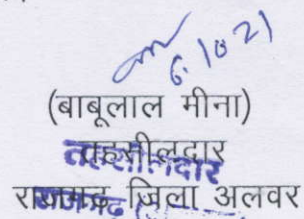 6.10.21
(बाबूलाल मीना)
तहसीलदार
तहसीलदार
राजगढ़ जिला अलवर
राजगढ़